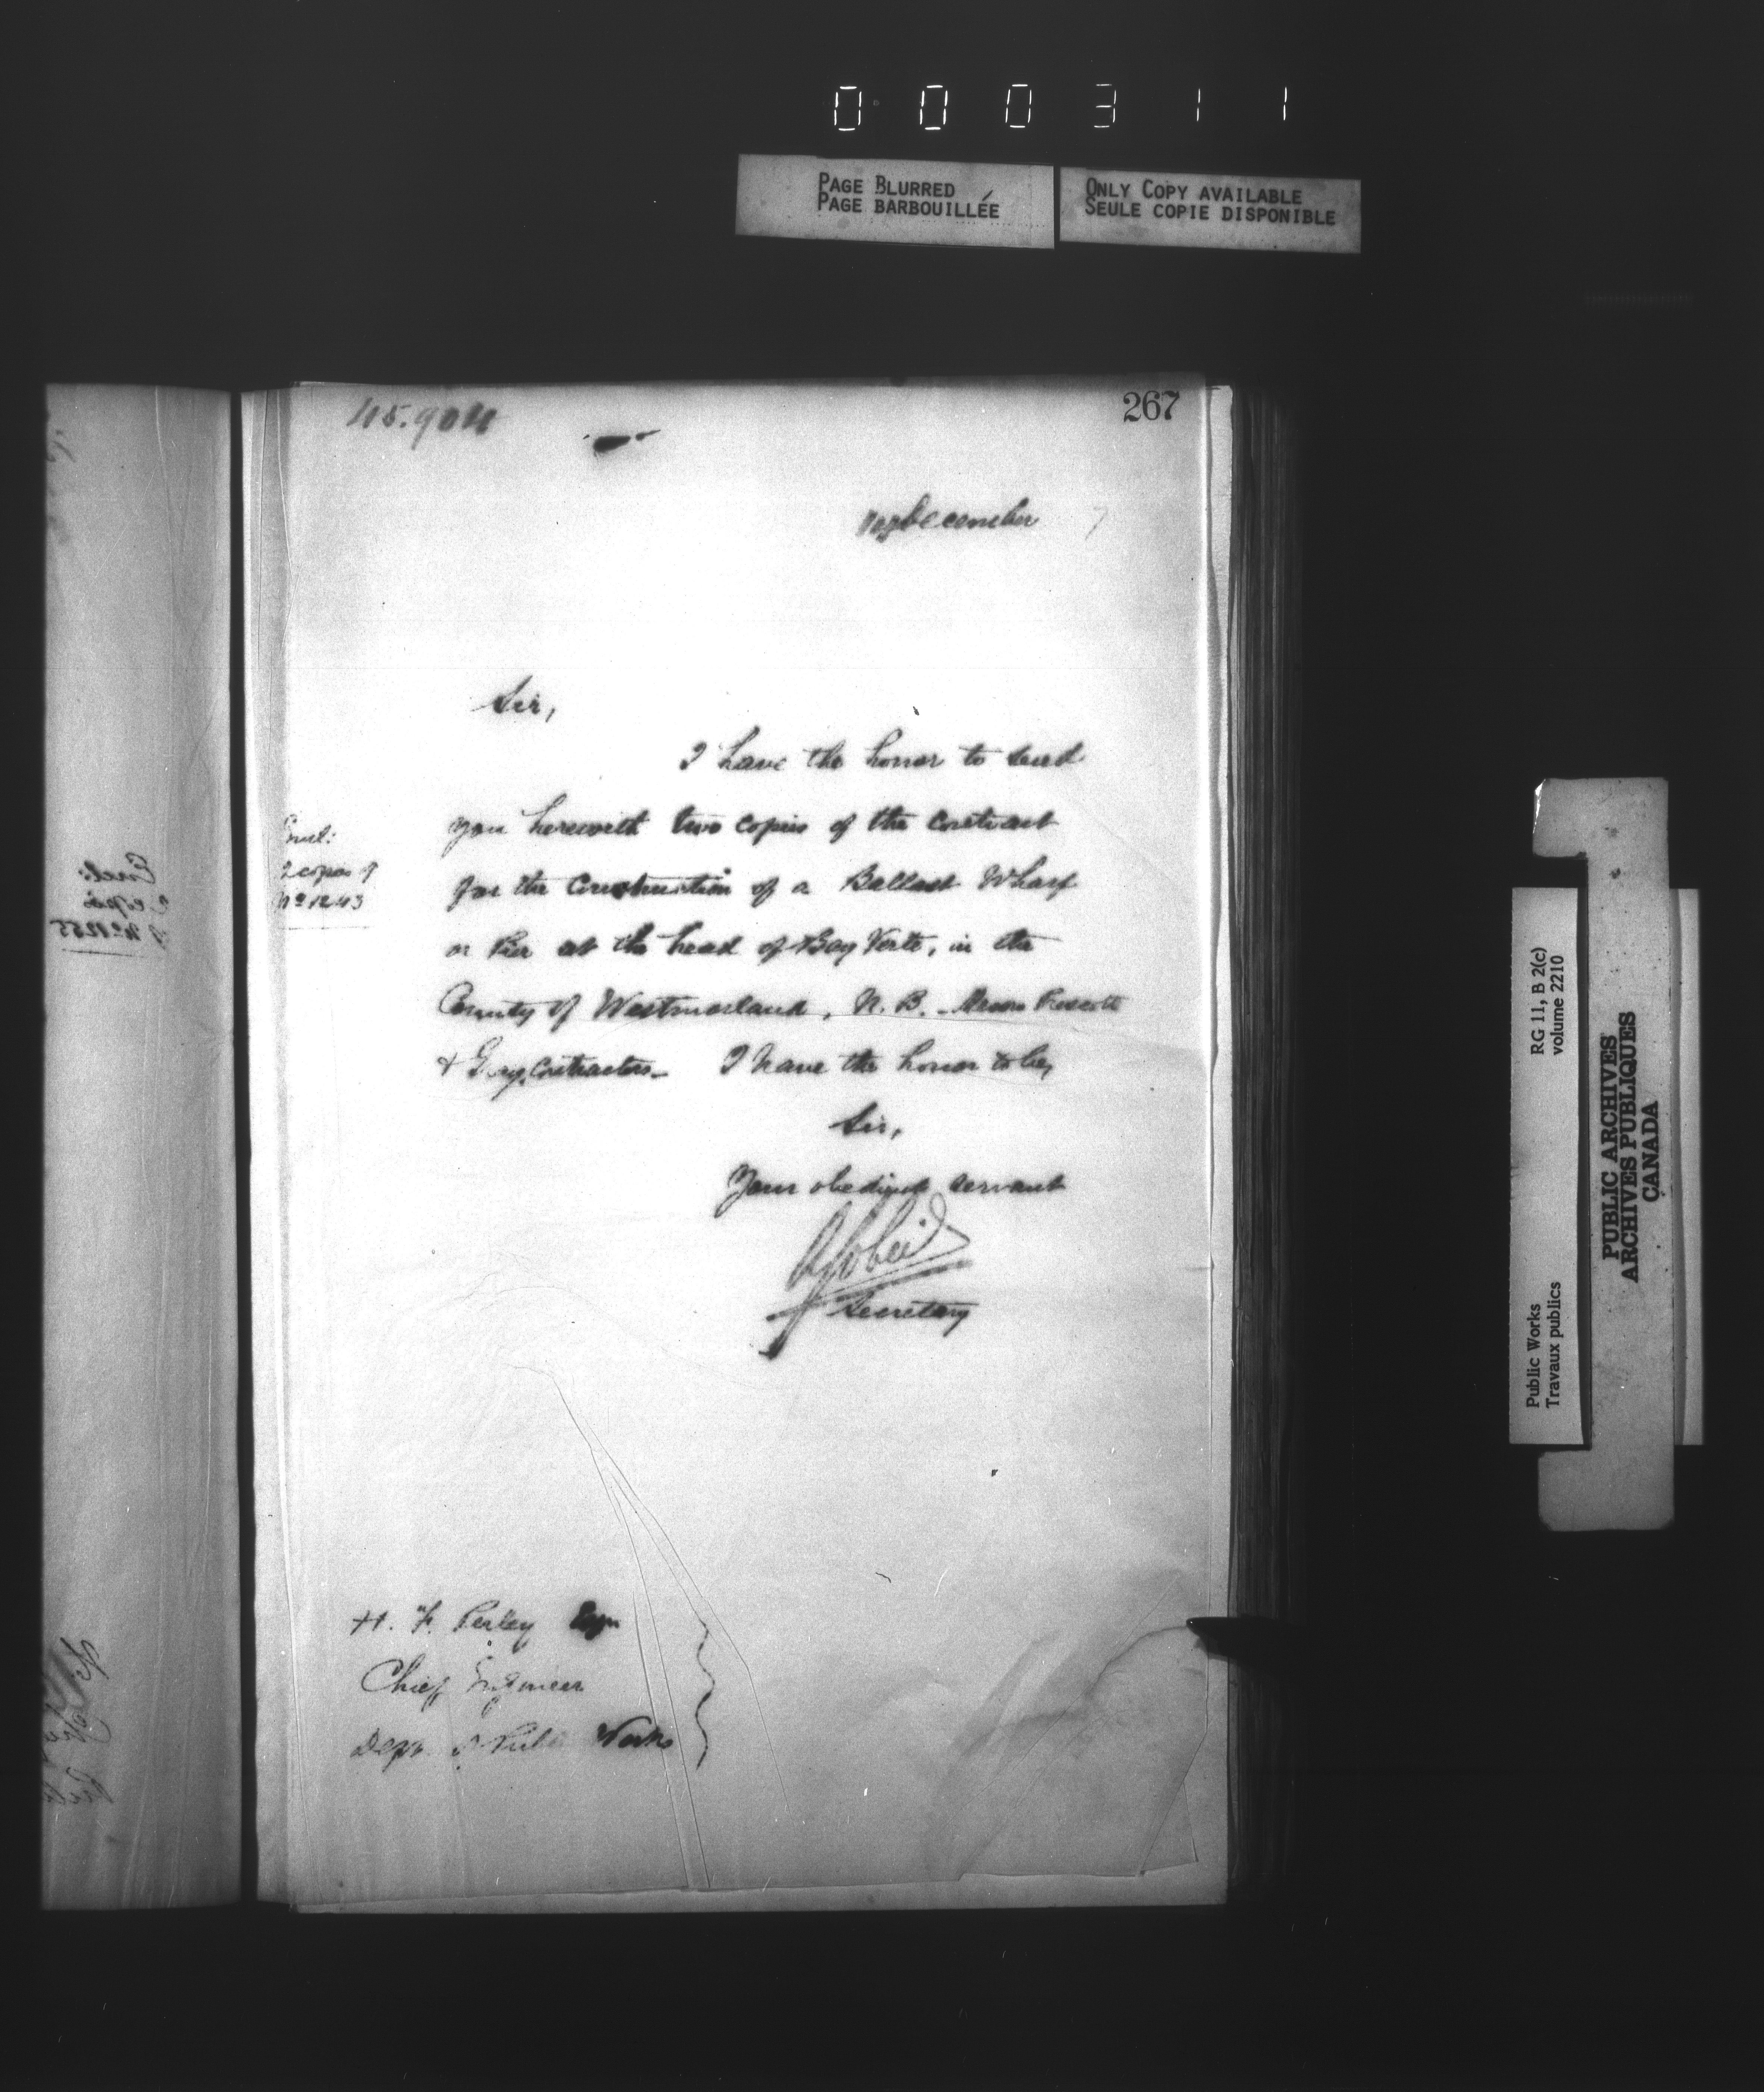 000311
PAGE BLURRED
PAGE BARBOUILLÉE
ONLY COPY AVAILABLE
SEULE COPIE DISPONIBLE
267
December 7
Sir,
I have the honor to send
you herewith two copies of the contract
for the Construction of a Ballast Wharf
or Pier at the head of Bay Verte, in the
County of Westmorland, N. B. Messrs Prescott
& Contractors I have the honor to be,
Sir,
Your obedient servant
Secretary
Encl:
2 copies of
No 1243
H. F. Perley Esqr
Chief Engineer
Dept. Public Works
Encl:
2 copies
No 1255
RG 11, B 2(c)
volume 2210
Public Works
Travaux publics
PUBLIC ARCHIVES
ARCHIVES PUBLIQUES
CANADA